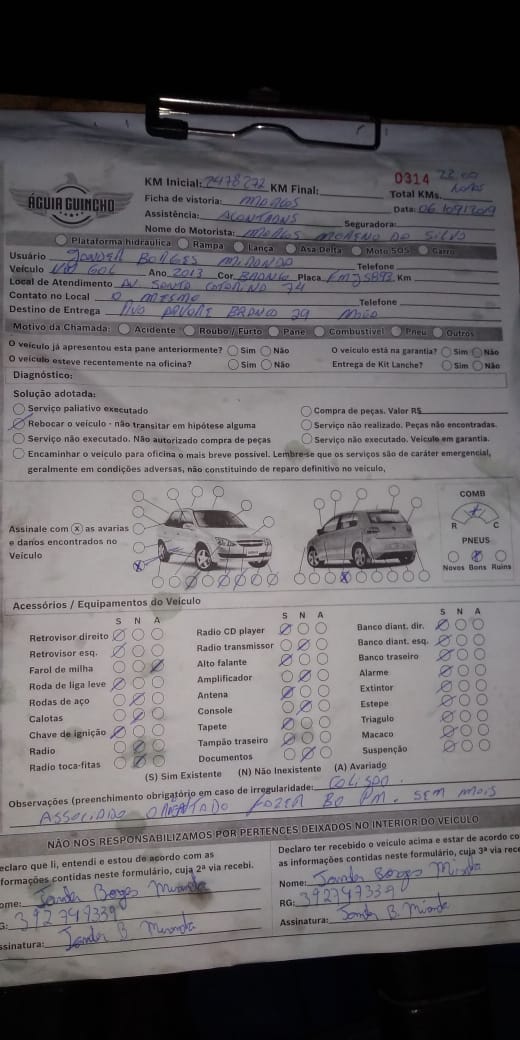 ÁGUIA GUINCHO
KM Inicial: 2478272 KM Final: 0314 22:00
Total KMs. horas
Ficha de vistoria: MARCOS Data: 06/09/2019
Assistência: Seguradora:
Nome do Motorista: MARCOS MORENO DA SILVA
Plataforma hidráulica Rampa Lança Asa Delta Moto SOS Carro
Usuário JANDER BORGES MIRANDA Telefone
Veículo VW GOL Ano 2013 Cor BRANCO Placa Km
Local de Atendimento AV. SANTA CATARINA 74
Contato no Local O MESMO Telefone
Destino de Entrega BRANCO 29
Motivo da Chamada: Acidente Roubo / Furto Pane Combustível Pneu Outros
O veículo já apresentou esta pane anteriormente? Sim Não O veículo está na garantia? Sim Não
O veículo esteve recentemente na oficina? Sim Não Entrega de Kit Lanche? Sim Não
Diagnóstico:
Solução adotada:
Serviço paliativo executado Compra de peças. Valor R$
Rebocar o veículo - não transitar em hipótese alguma Serviço não realizado. Peças não encontradas.
Serviço não executado. Não autorizado compra de peças Serviço não executado. Veículo em garantia.
Encaminhar o veículo para oficina o mais breve possível. Lembre-se que os serviços são de caráter emergencial,
geralmente em condições adversas, não constituindo de reparo definitivo no veículo,
Assinale com X as avarias
e danos encontrados no
Veículo
COMB
R C
PNEUS
Novos Bons Ruins
Acessórios / Equipamentos do Veículo
S N A S N A S N A
Retrovisor direito Radio CD player Banco diant. dir.
Retrovisor esq. Radio transmissor Banco diant. esq.
Farol de milha Alto falante Banco traseiro
Roda de liga leve Amplificador Alarme
Rodas de aço Antena Extintor
Calotas Console Estepe
Chave de ignição Tapete Triagulo
Radio Tampão traseiro Macaco
Radio toca-fitas Documentos Suspenção
(S) Sim Existente (N) Não Inexistente (A) Avariado
Observações (preenchimento obrigatório em caso de irregularidade: COLISAO.
ASSOCIADO ORIENTADO FAZER BO PM. SEM MAIS
NÃO NOS RESPONSABILIZAMOS POR PERTENCES DEIXADOS NO INTERIOR DO VEÍCULO
eclaro que li, entendi e estou de acordo com as
formações contidas neste formulário, cuja 2ª via recebi.
ome: Jander Borges Miranda
G: 392747339
ssinatura: Jander B Miranda
Declaro ter recebido o veículo acima e estar de acordo co
as informações contidas neste formulário, cuja 3ª via rece
Nome: Jander Borges Miranda
RG: 392747339
Assinatura: Jander B. Miranda